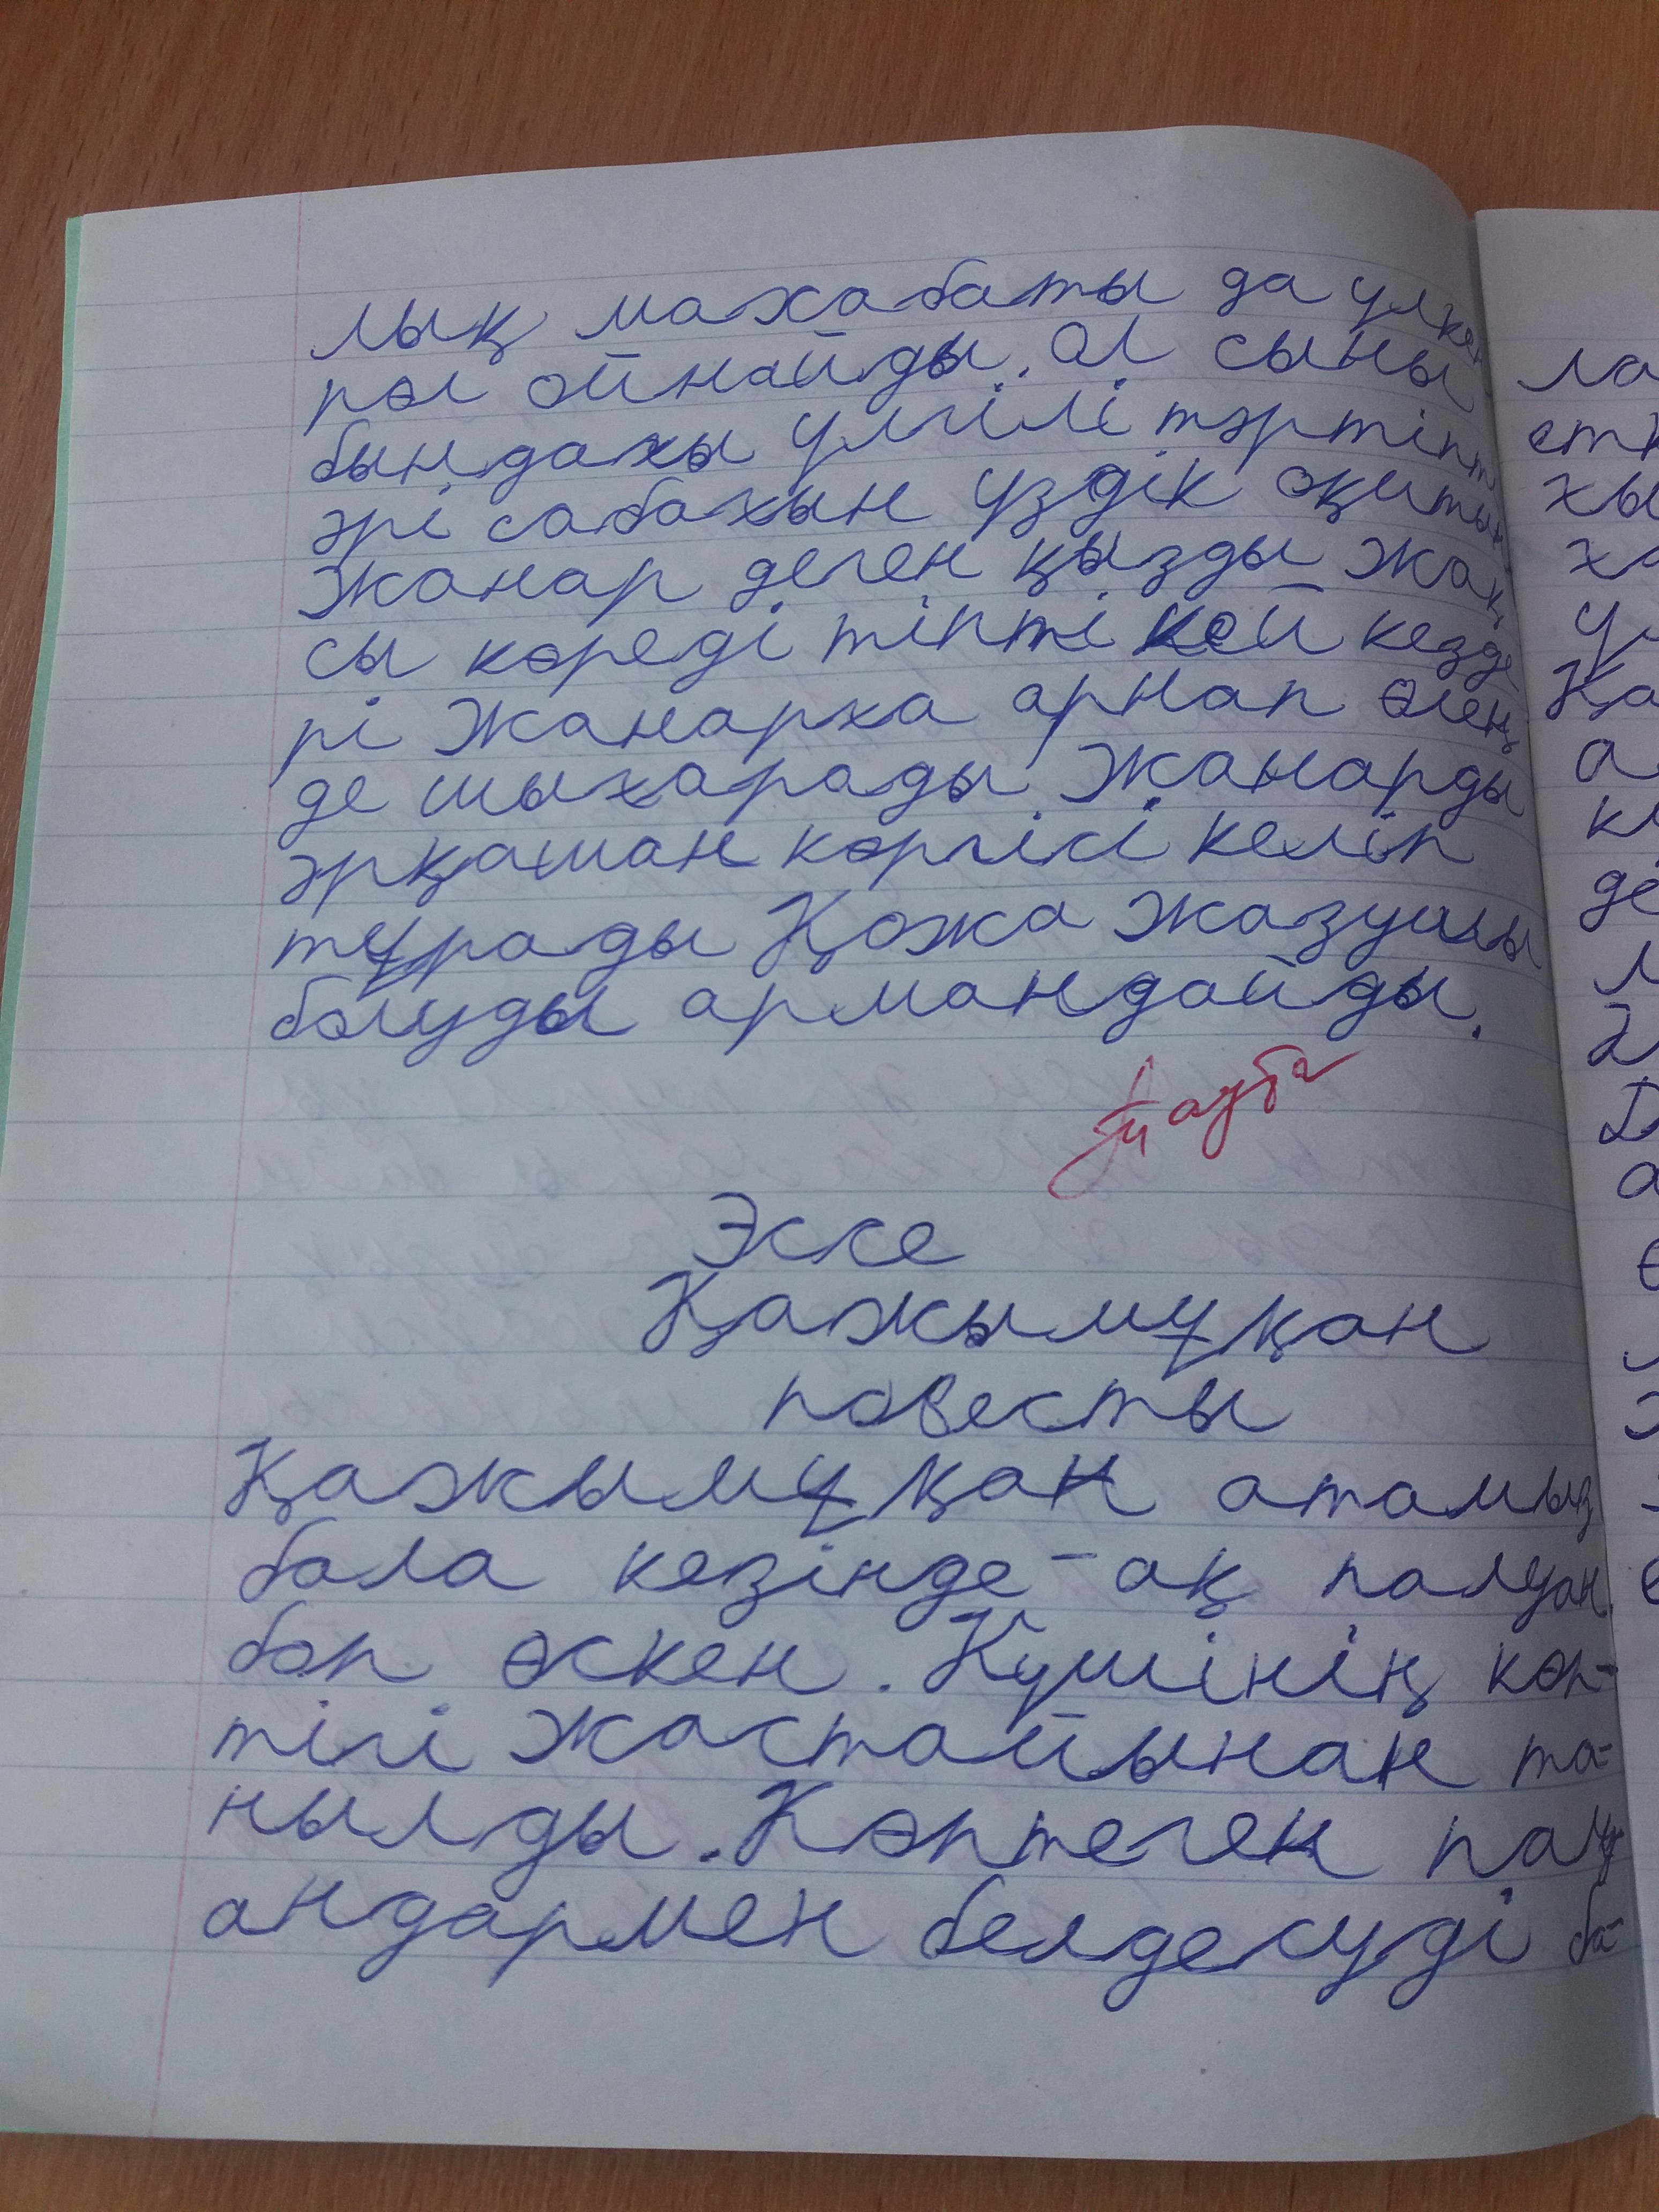 лық махабаты да үлкен
рөл ойнайды. Ол сыны
бындахы үлгілі тәртіпті
әрі сабахын үздік оқитын
Жанар деген қызды жақ
сы көреді тіпті кей кезде
рі Жанарха арнап өлең
де шыхарады Жанарды
әрқашан көргісі келіп
тұрады Қожа жазушы
болуды армандайды.
Эссе
Қажымұқан
повесты
Қажымұқан атамыз
бала кезінде-ақ палуан
боп өскен. Күшінің көп-
тігі жастайынан та-
нылды. Көптеген палу
андармен белдесуді ба-
ла
стк
хы
ха
Қа
а
кі
де
л
2
D
а